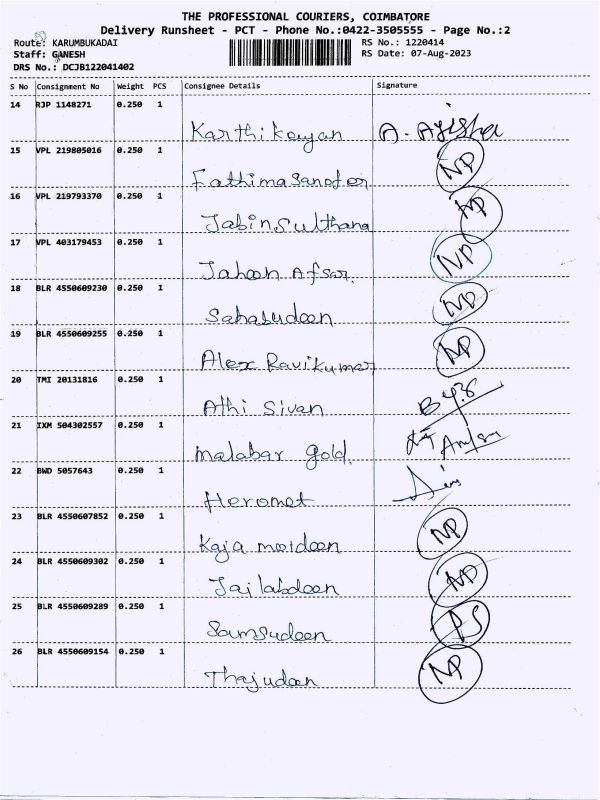 THE PROFESSIONAL COURIERS, COIMBATORE
Delivery Runsheet - PCT - Phone No.:0422-3505555 - Page No.:2
Route: KARUMBUKADAI RS No.: 1220414
Staff: GANESH RS Date: 07-Aug-2023
DRS No.: DCJB122041402
S No Consignment No Weight PCS Consignee Details Signature
14 RJP 1148271 0.250 1
Karthikeyan A. Ayisha
15 VPL 219805016 0.250 1 NP
Fathima Sanofer
16 VPL 219793370 0.250 1 NP
Jabin Sulthana
17 VPL 403179453 0.250 1 NP
Jahoon Afsar.
18 BLR 4550609230 0.250 1 NP
Sahabudeen
19 BLR 4550609255 0.250 1 NP
Alex Ravikumar
20 TMI 20131816 0.250 1
Athi Sivan
21 IXM 504302557 0.250 1
Malabar gold.
22 BWD 5057643 0.250 1
Heromet
23 BLR 4550607852 0.250 1 NP
Kaja moideen
24 BLR 4550609302 0.250 1 NP
Jailabdeen
25 BLR 4550609289 0.250 1 PS
Samsudeen
26 BLR 4550609154 0.250 1 NP
Thajudeen